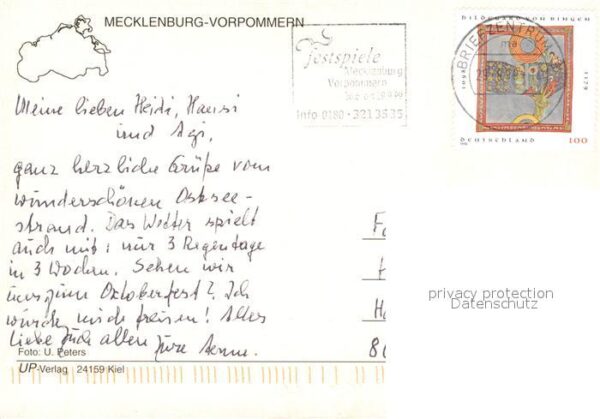 MECKLENBURG-VORPOMMERN
Festspiele
Mecklenburg
Vorpommern
Info 0180 · 321 35 35
BRIEFZENTRUM
HILDEGARD VON BINGEN
1098
1179
DEUTSCHLAND 100
Meine lieben Heidi, Hansi
und Agi,
ganz herzliche Grüße vom
wunderschönen Ostsee-
strand. Das Wetter spielt
auch mit: nur 3 Regentage
in 3 Wochen. Sehen wir
uns zum Oktoberfest? Ich
würde mich freuen! Alles
Liebe Euch allen Eure
Foto: U. Peters
UP-Verlag 24159 Kiel
privacy protection
Datenschutz